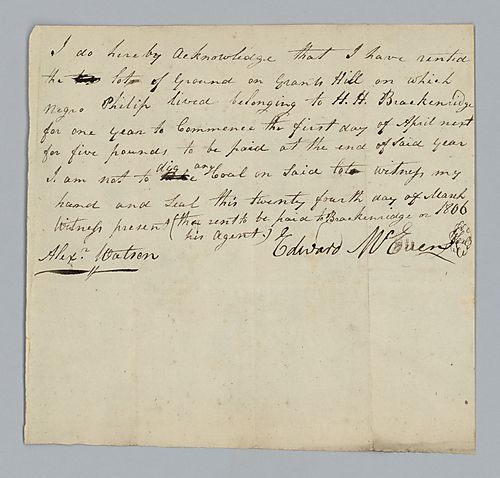 I do hereby Acknowledge that I have rented
the lots of Ground on Grants Hill on which
Negro Philip lived belonging to H. H. Brackenridge
for one year to Commence the first day of April next
for five pounds to be paid at the end of said year
I am not to dig any Coal on Said lots witness my
hand and Seal this twenty fourth day of March
1806
Witness present (the rent to be paid to Brackenridge or
his Agent.)
Alexr. Watson
Edward McEuen